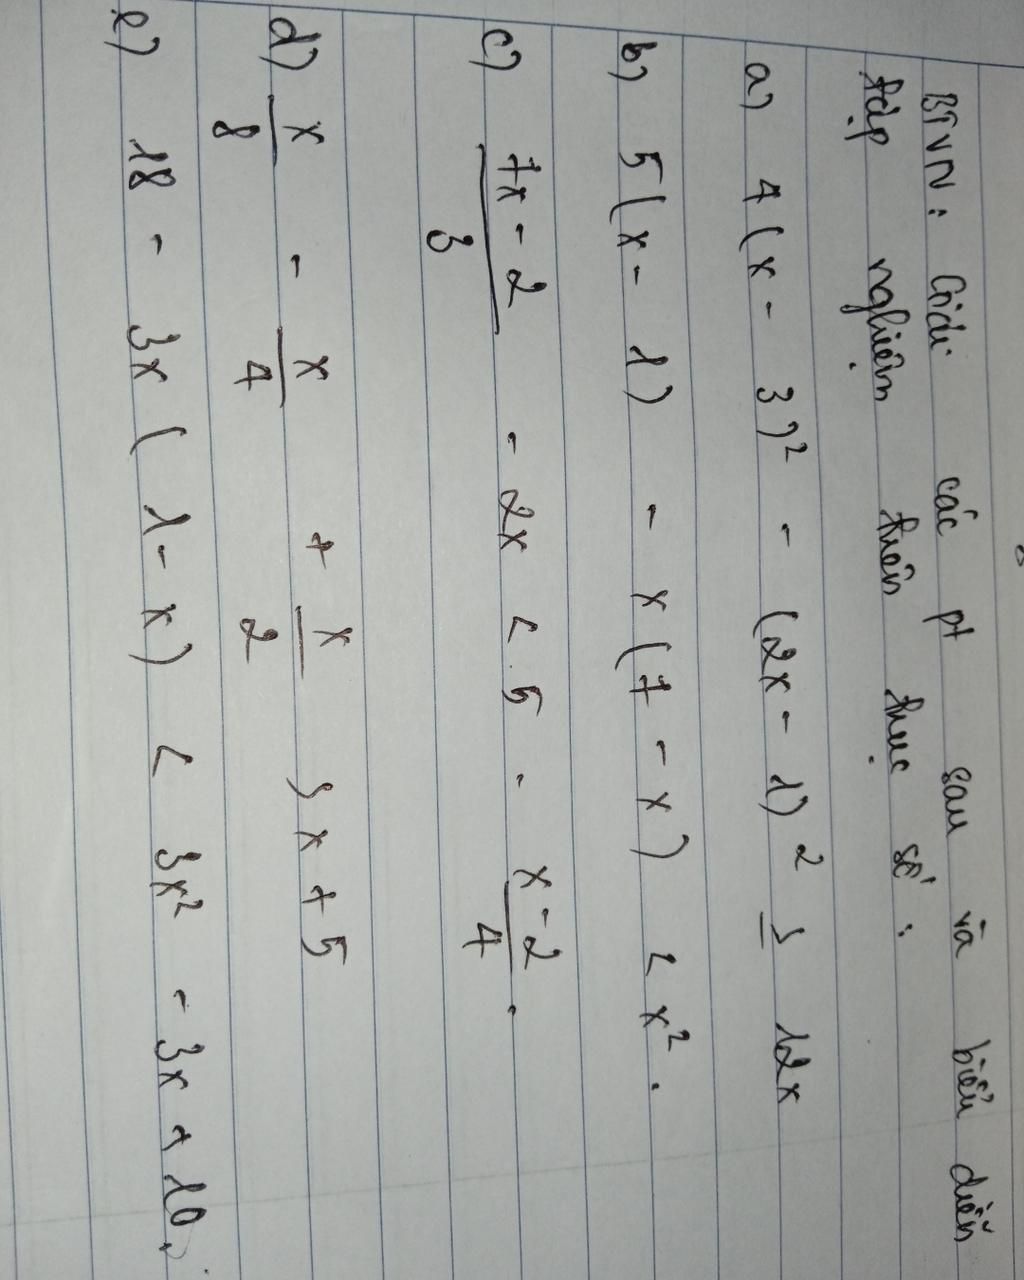 BTVN: Giải các pt sau và biểu diễn
tập nghiệm trên trục số:
a) 4(x - 3)² - (2x - 1)² ≥ 12x
b) 5(x - 1) - x(7 - x) < x².
c) \frac{7x - 2}{3} - 2x < 5 - \frac{x - 2}{4}.
d) \frac{x}{8} - \frac{x}{4} + \frac{x}{2} > x + 5
e) 18 - 3x(1 - x) < 3x² - 3x + 10.